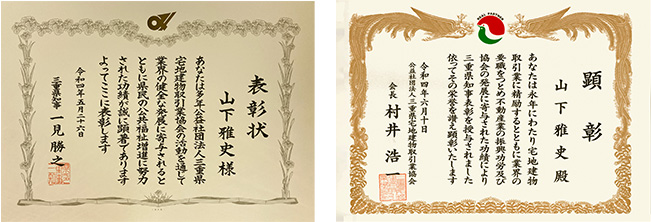 表彰状
山下雅史様
あなたは多年公益社団法人三重県
宅地建物取引業協会の活動を通して
業界の健全な発展に寄与されると
ともに県民の公共福祉増進に努力
された功績が誠に顕著であります
よってここに表彰します
令和四年五月二十六日
三重県知事 一見勝之
REAL PARTNER
顕彰
山下雅史殿
あなたは永年にわたり宅地建物
取引業に精励するとともに業界の
要職をつとめ不動産業の振興功労及び
協会の発展に寄与された功績により
三重県知事表彰を授与されました
依つてその栄誉を讃え顕彰いたします
令和四年六月十日
公益社団法人三重県宅地建物取引業協会
会長 村井浩一